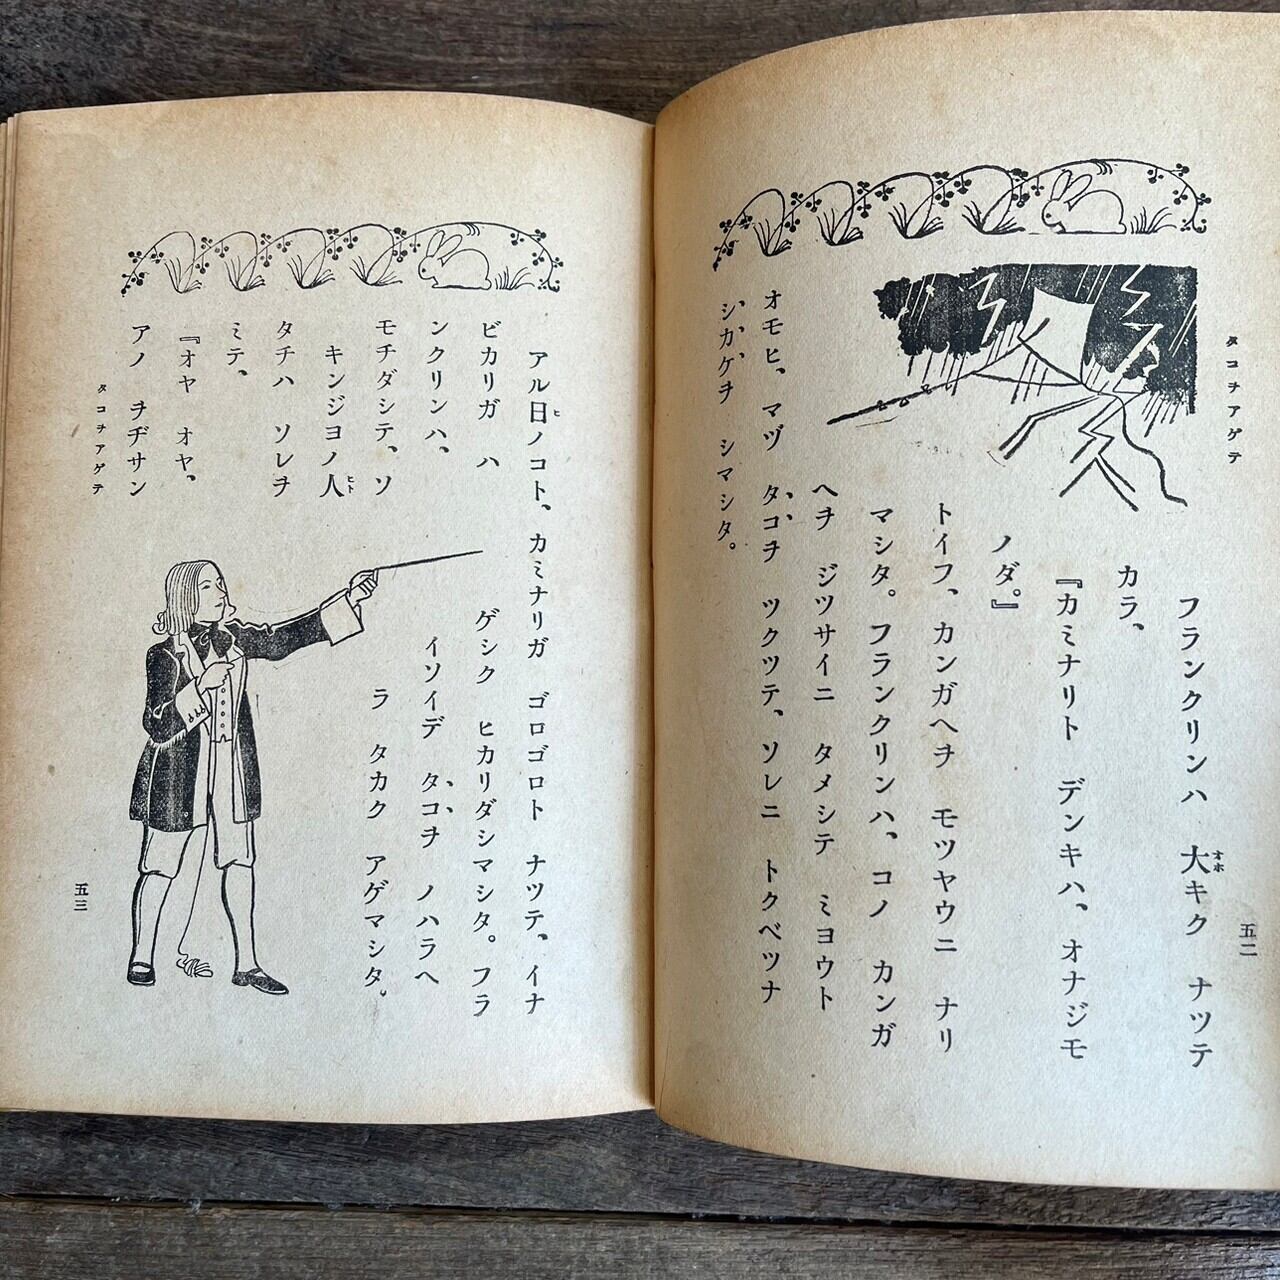 タコヲアゲテ
五二
フランクリンハ 大キク ナツテ
オホ
カラ、
『カミナリト デンキハ、オナジモ
ノダ。』
トイフ、カンガヘヲ モツヤウニ ナリ
マシタ。フランクリンハ、コノ カンガ
ヘヲ ジツサイニ タメシテ ミヨウト
オモヒ、マヅ タコヲ ツクツテ、ソレニ トクベツナ
シカケヲ シマシタ。
アル日ノコト、カミナリガ ゴロゴロト ナツテ、イナ
ヒ
ビカリガ ハゲシク ヒカリダシマシタ。フラ
ンクリンハ、イソイデ タコヲ ノハラヘ
モチダシテ、ソラ タカク アゲマシタ。
キンジヨノ人
ヒト
タチハ ソレヲ
ミテ、
『オヤ オヤ、
アノ ヲヂサン
タコヲアゲテ
五三